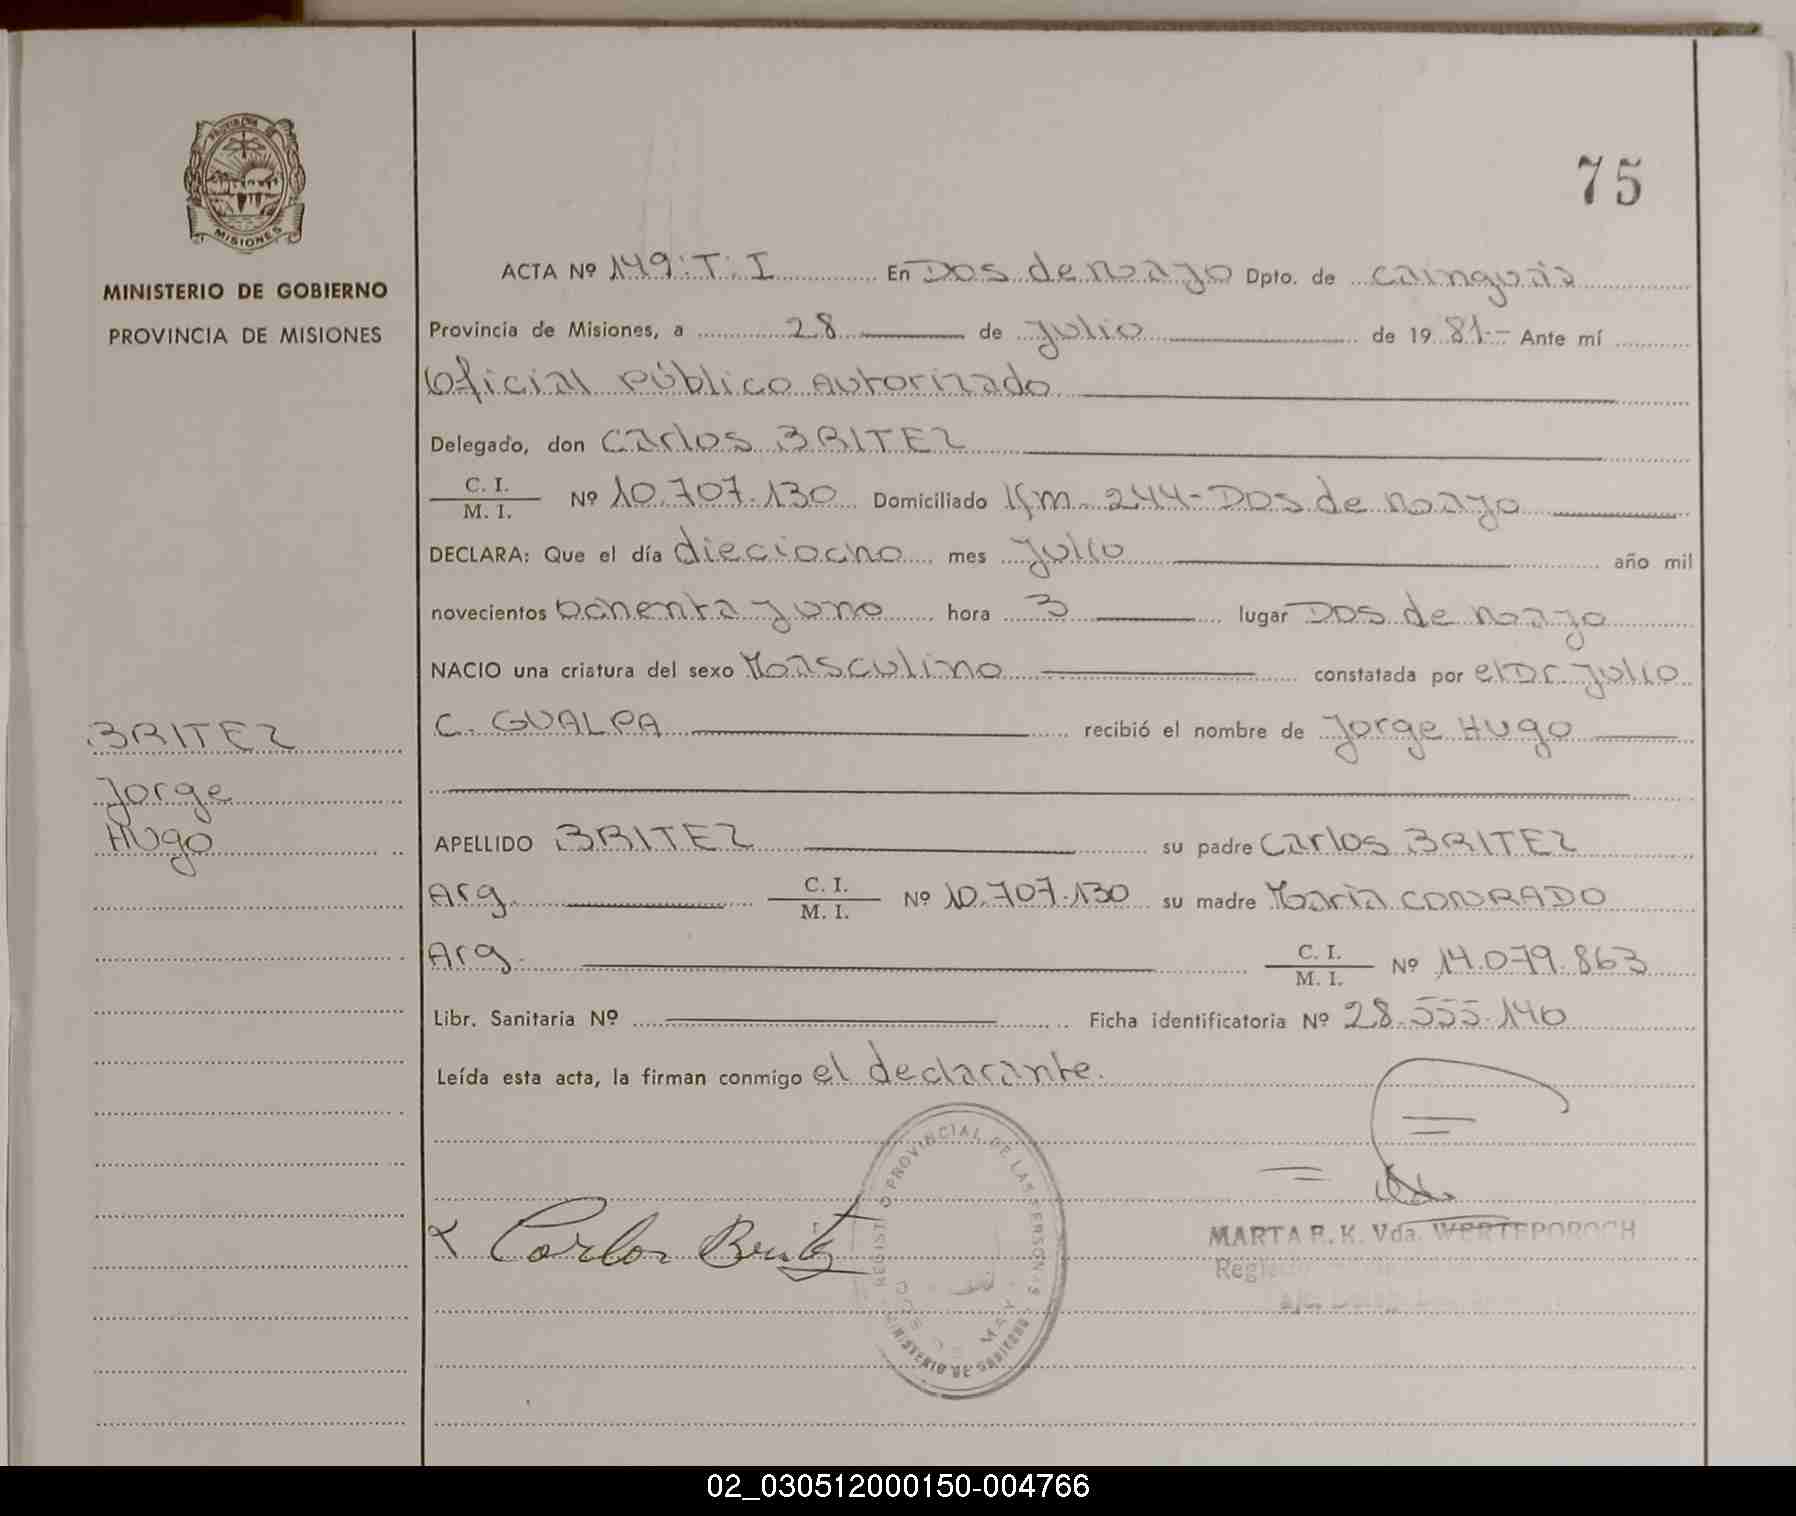 75
PROVINCIA DE
MISIONES
MINISTERIO DE GOBIERNO
PROVINCIA DE MISIONES
ACTA Nº 149. T. I En Dos de mayo Dpto. de Cainguás
Provincia de Misiones, a 28 de julio de 1981.- Ante mí
Oficial público Autorizado
Delegado, don Carlos BRITEZ
C. I.
M. I. Nº 10.707.130 Domiciliado Km. 244-Dos de mayo
DECLARA: Que el día dieciocho mes julio año mil
novecientos ochenta y uno hora 3 lugar Dos de mayo
NACIO una criatura del sexo Masculino constatada por el Dr. Julio
C. GUALPA recibió el nombre de Jorge Hugo
BRITEZ
Jorge
Hugo
APELLIDO BRITEZ su padre Carlos BRITEZ
Arg. C. I.
M. I. Nº 10.707.130 su madre María CONRADO
Arg. C. I.
M. I. Nº 14.079.863
Libr. Sanitaria Nº Ficha identificatoria Nº 28.555.140
Leída esta acta, la firman conmigo el declarante.
Carlos Britez
REGISTRO PROVINCIAL DE LAS PERSONAS
MINISTERIO DE GOBIERNO
MARTA R. K. Vda. WERTEPOROCH
02_030512000150-004766